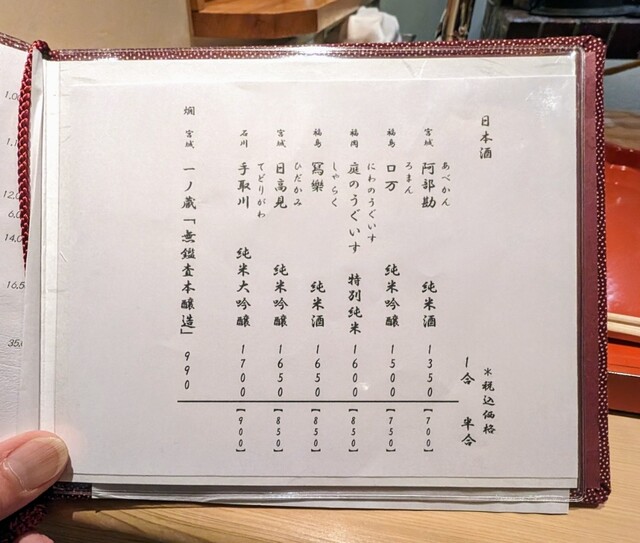 日本酒
*税込価格
1合 半合
あべかん
宮城 阿部勘 純米酒 1350 【700】
ろまん
福島 ロ万 純米吟醸 1500 【750】
にわのうぐいす
福岡 庭のうぐいす 特別純米 1600 【850】
しゃらく
福島 冩樂 純米酒 1650 【850】
ひだかみ
宮城 日高見 純米吟醸 1650 【850】
てどりがわ
石川 手取川 純米大吟醸 1700 【900】
燗 宮城 一ノ蔵「無鑑査本醸造」 990